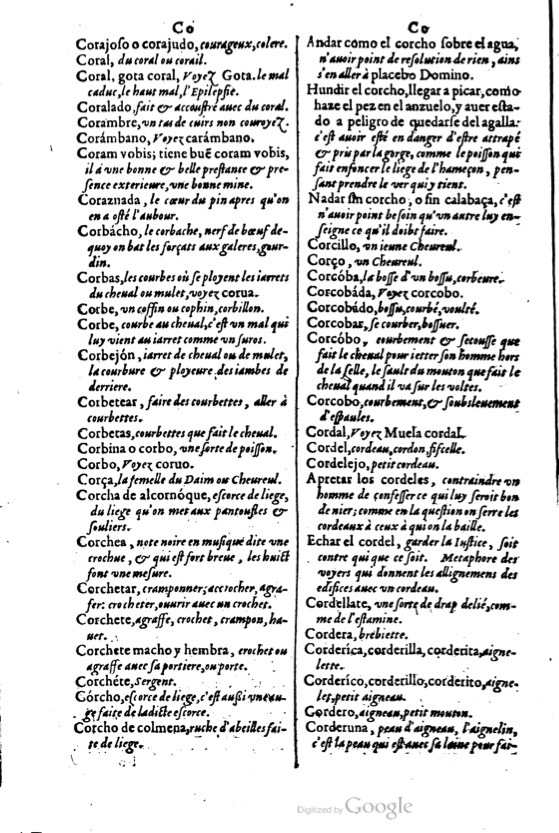 Co
Corajoso o corajudo, courageux, colere.
Coral, du coral ou corail.
Coral, gota coral, Voyez Gota. le mal
caduc, le haut mal, l'Epilepsie.
Coralado, fait & accoustré auec du coral.
Corambre, vn tas de cuirs non couroyez.
Corámbano, Voyez carámbano.
Coram vobis; tiene buẽ coram vobis,
il a vne bonne & belle prestance & pre-
sence exterieure, vne bonne mine.
Coraznada, le cœur du pin apres qu'on
en a osté l'aubour.
Corbácho, le corbache, nerf de bœuf de-
quoy on bat les forçats aux galeres, gour-
din.
Corbas, les courbes où se ployent les iarrets
du cheual ou mulet, voyez corua.
Corbe, vn coffin ou cophin, corbillon.
Corbe, courbe au cheual, c'est vn mal qui
luy vient au iarret comme vn suros.
Corbejón, iarret de cheual ou de mulet,
la courbure & ployeure des iambes de
derriere.
Corbetear, faire des courbettes, aller à
courbettes.
Corbetas, courbettes que fait le cheual.
Corbina o corbo, vne sorte de poisson.
Corbo, Voyez coruo.
Corça, la femelle du Daim ou Cheureul.
Corcha de alcornóque, escorce de liege,
du liege qu'on met aux pantoufles &
souliers.
Corchea, note noire en musique dite vne
crochue, & qui est fort breue, les huict
font vne mesure.
Corchetar, cramponner; accrocher, agra-
fer: crocheter, ouurir auec un crochet.
Corchete, agraffe, crochet, crampon, ha-
uet.
Corchete macho y hembra, crochet ou
agraffe auec sa portiere, ou porte.
Corchéte, Sergent.
Córcho, escorce de liege, c'est aussi vne au-
ge faite de ladicte escorce.
Corcho de colmena, ruche d'abeilles fai-
te de liege.
Co
Andar como el corcho sobre el agua,
n'auoir point de resolution de rien, ains
s'en aller à placebo Domino.
Hundir el corcho, llegar a picar, como
haze el pez en el anzuelo, y auer esta-
do a peligro de quedarse del agalla:
c'est auoir esté en danger d'estre attrapé
& pris par la gorge, comme le poisson qui
fait enfoncer le liege de l'hameçon, pen-
sant prendre le ver qui y tient.
Nadar sin corcho, o sin calabaça, c'est
n'auoir point besoin qu'vn autre luy en-
seigne ce qu'il doibt faire.
Corcillo, vn ieune Cheureul.
Corço, vn Cheureul.
Corcóba, la bosse d'vn bossu, corbeure.
Corcobáda, Voyez corcobo.
Corcobádo, bossu, courbé, voulté.
Corcobar, se courber, bossuer.
Corcóbo, courbement & secousse que
fait le cheual pour ietter son homme hors
de la selle, le sault du mouton que fait le
cheual quand il va sur les voltes.
Corcobo, courbement, & soubsleuement
d'espaules.
Cordal, Voyez Muela cordal.
Cordel, cordeau, cordon, fisselle.
Cordelejo, petit cordeau.
Apretar los cordeles, contraindre vn
homme de confesser ce qui luy seroit bon
de nier; comme en la question on serre les
cordeaux à ceux à qui on la baille.
Echar el cordel, garder la Iustice, soit
contre qui que ce soit. Metaphore des
voyers qui donnent les allignemens des
edifices auec vn cordeau.
Cordellate, vne sorte de drap delié, com-
me de l'estamine.
Cordera, brebiette.
Corderica, corderilla, corderita, aigne-
lette.
Corderíco, corderillo, corderito, aigne-
let, petit aigneau.
Cordero, aigneau, petit mouton.
Corderuna, peau d'aigneau, l'aignelin,
c'est la peau qui est auec sa laine pour fai-
Digitized by Google